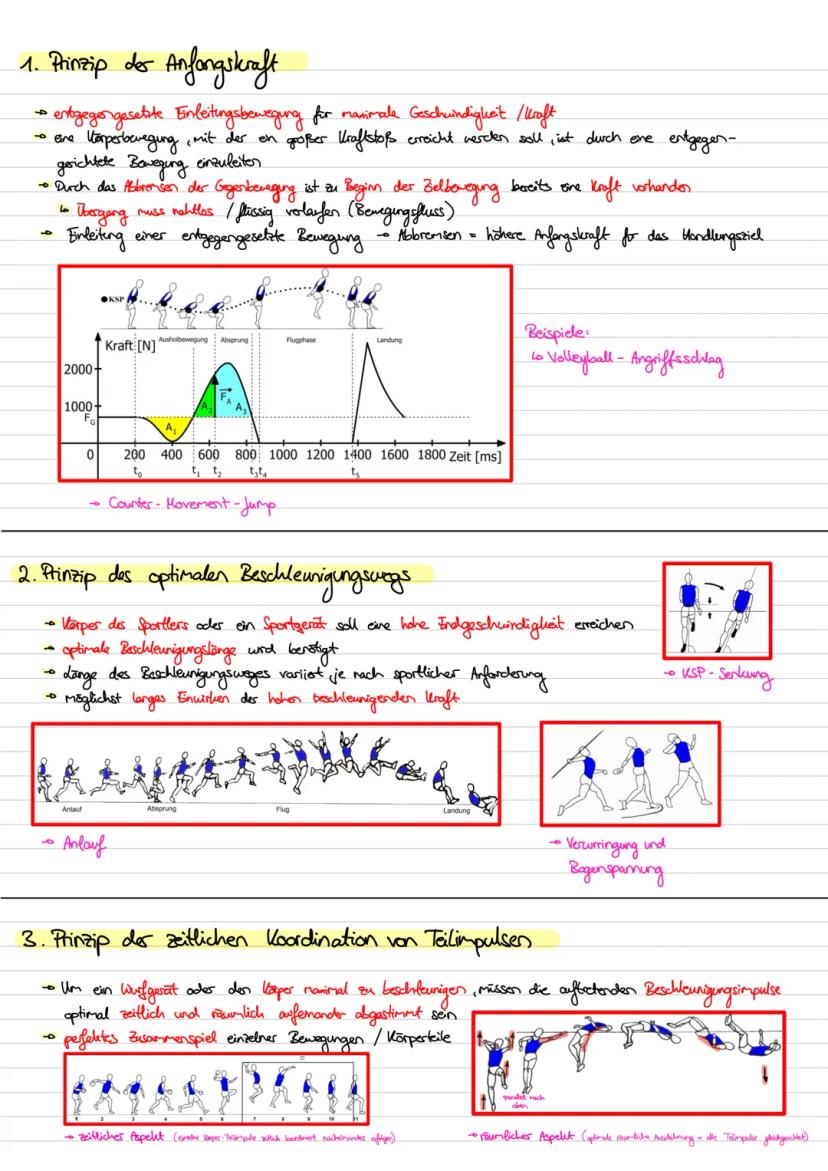 1. Prinzip der Anfangskraft
→ entgegengesetzte Einleitungsbewegung für maximale Geschwindigkeit / Kraft
→ eine Körperbewegung, mit der ein großer Kraftstoß erreicht werden soll, ist durch eine entgegen-
gerichtete Bewegung einzuleiten
→ Durch das Abbremsen der Gegenbewegung ist zu Beginn der Zielbewegung bereits eine Kraft vorhanden
↳ Übergang muss nahtlos / flüssig verlaufen (Bewegungsfluss)
→ Einleitung einer entgegengesetzte Bewegung → Abbremsen = höhere Anfangskraft für das Handlungsziel
KSP
Kraft [N] Ausholbewegung Absprung Flugphase Landung
2000
1000
FG
A1 A2 FA A3
0 200 400 600 800 1000 1200 1400 1600 1800 Zeit [ms]
t0 t1 t2 t3 t4 t5
Beispiele:
↳ Volleyball - Angriffsschlag
→ Counter-Movement-Jump
2. Prinzip des optimalen Beschleunigungswegs
→ Körper des Sportlers oder ein Sportgerät soll eine hohe Endgeschwindigkeit erreichen
→ optimale Beschleunigungslänge wird benötigt
→ Länge des Beschleunigungsweges variiert je nach sportlicher Anforderung
→ möglichst langes Einwirken der hohen beschleunigenden Kraft
→ KSP - Senkung
Anlauf Absprung Flug Landung
→ Anlauf
→ Verwringung und
Bogenspannung
3. Prinzip der zeitlichen Koordination von Teilimpulsen
→ Um ein Wurfgerät oder den Körper maximal zu beschleunigen, müssen die auftretenden Beschleunigungsimpulse
optimal zeitlich und räumlich aufeinander abgestimmt sein
→ perfektes Zusammenspiel einzelner Bewegungen / Körperteile
1 2 3 4 5 6 7 8 9 10 11
parallel nach
oben
→ zeitlicher Aspekt (einzelne Körper-Teilimpulse zeitlich koordiniert nacheinander erfolgen)
→ räumlicher Aspekt (optimale räumliche Ausdehnung + alle Teilimpulse gleichgerichtet)